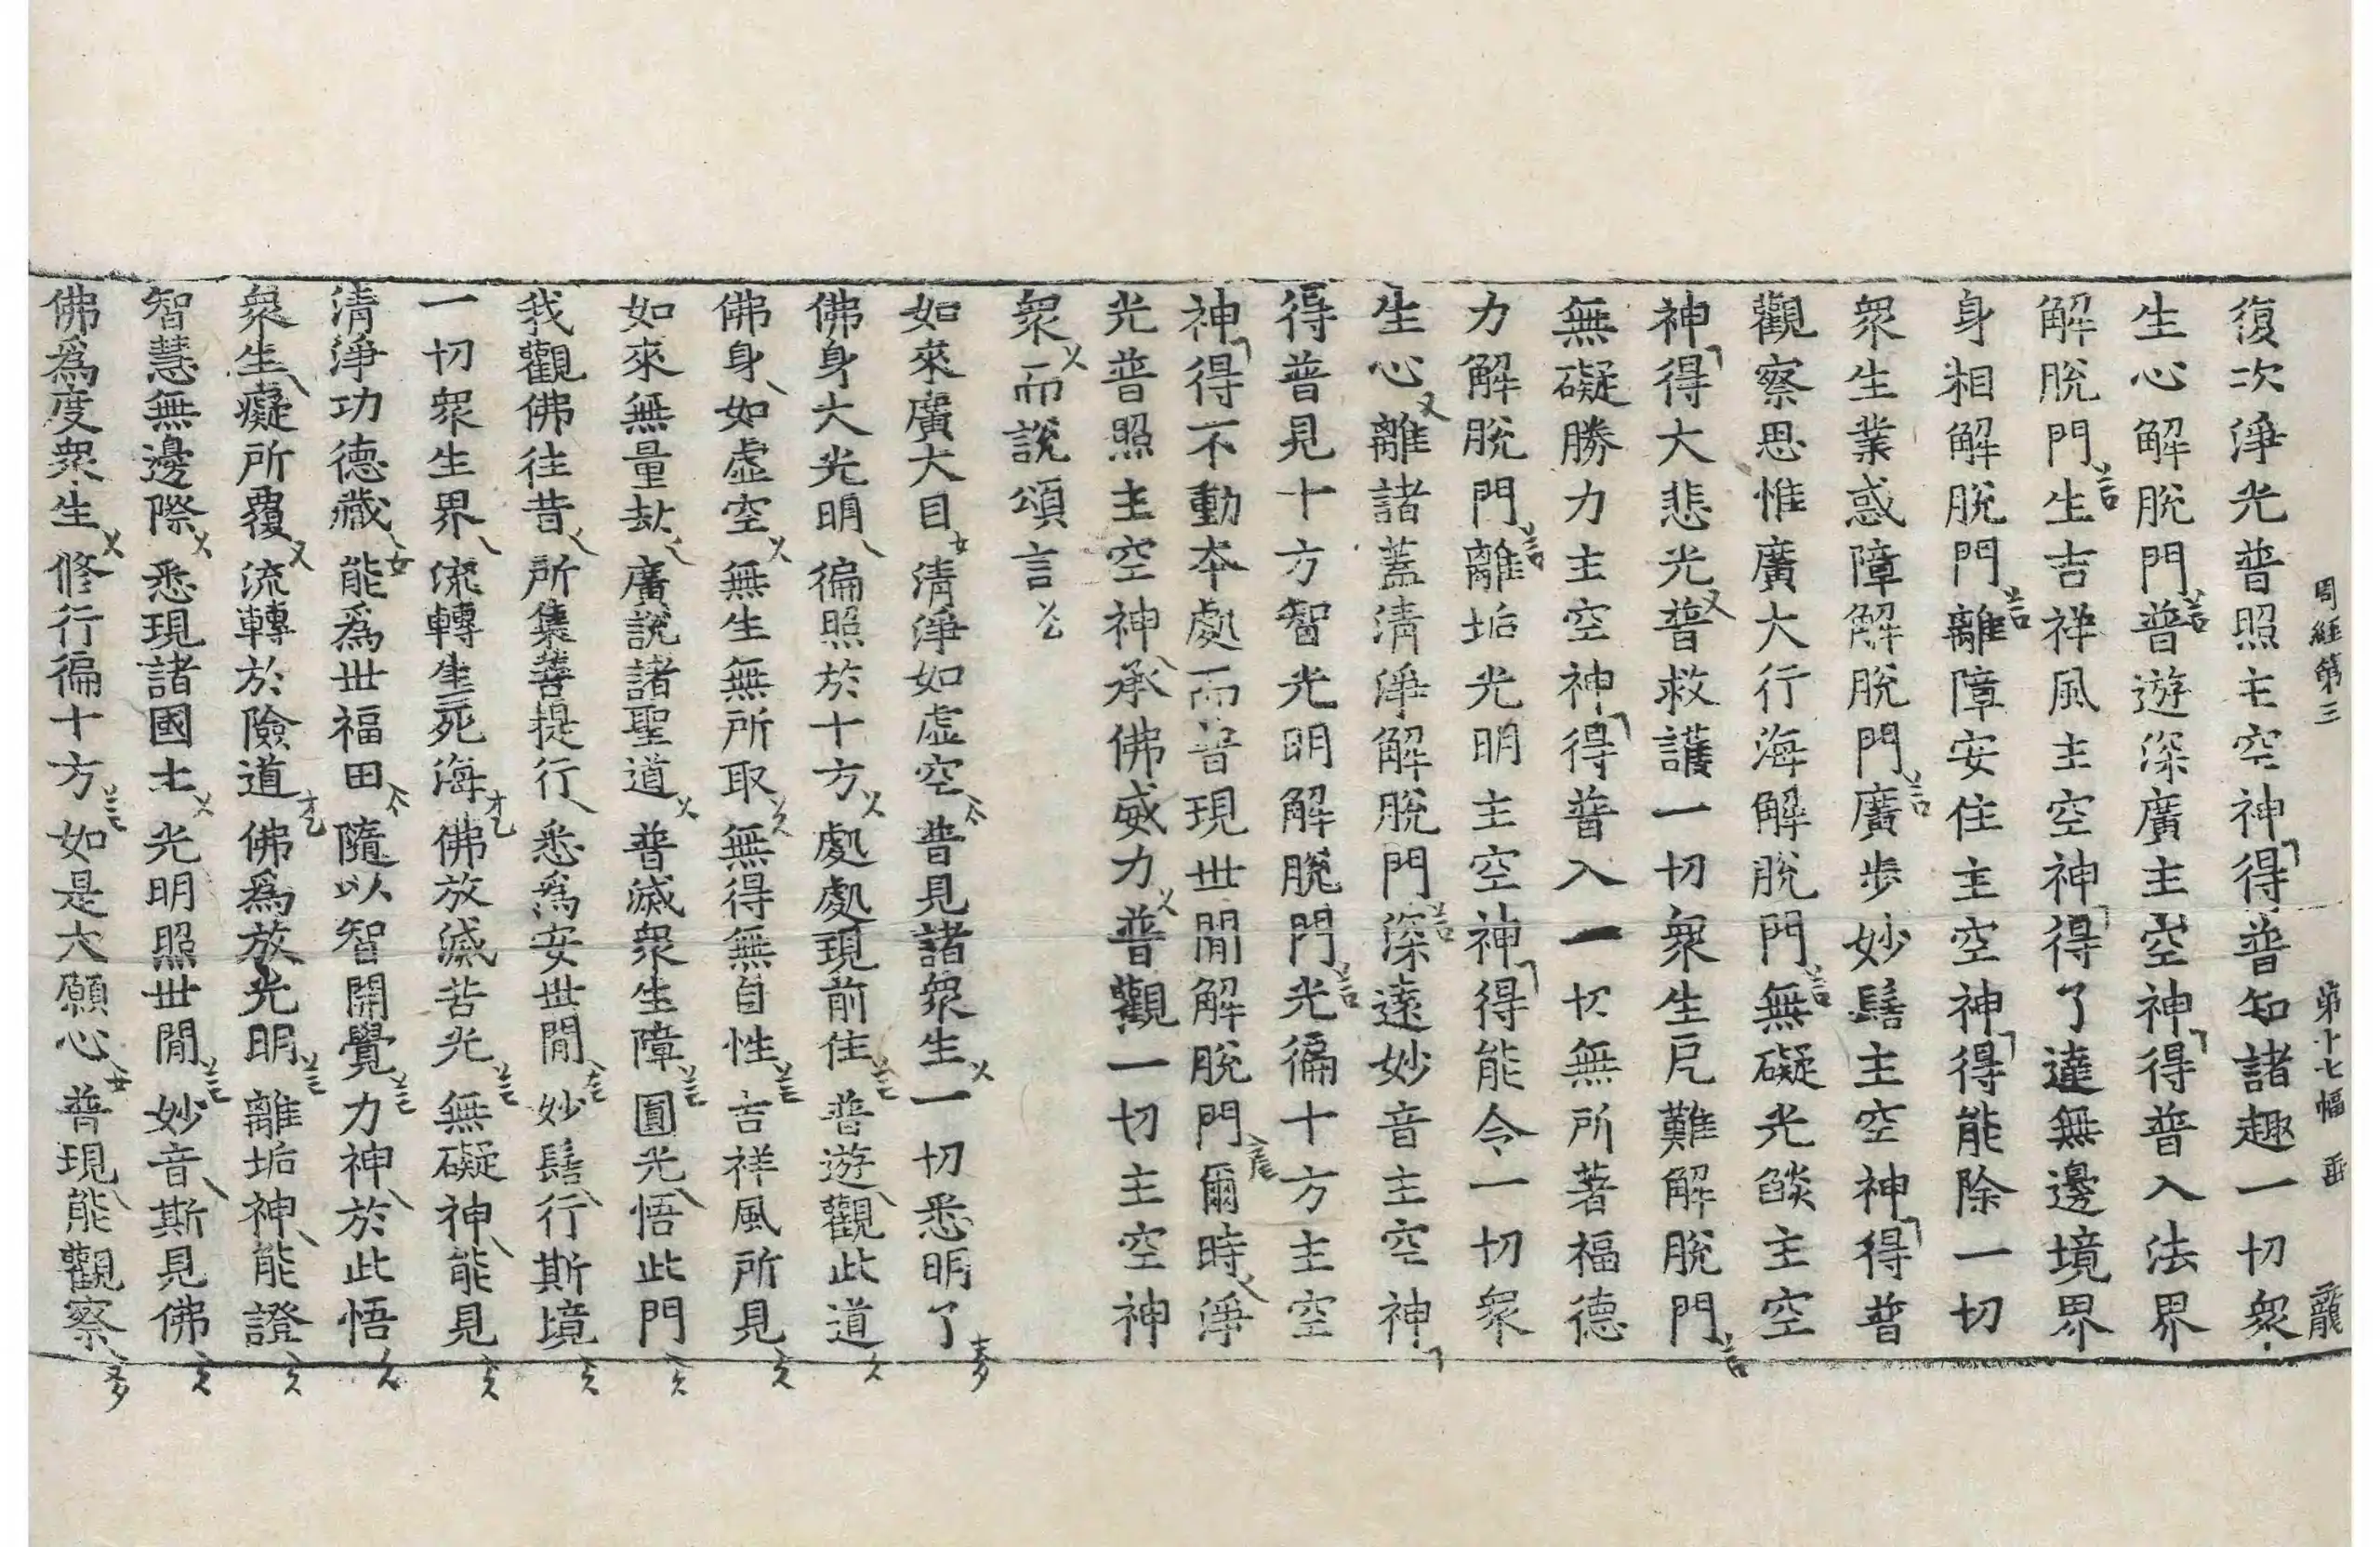 周經第三 第十七幅 垂 龍
復次淨光普照主空神得普知諸趣一切衆
生心解脫門普遊深廣主空神得普入法界
解脫門生吉祥風主空神得了達無邊境界
身相解脫門離障安住主空神得能除一切
衆生業惑障解脫門廣步妙髻主空神得普
觀察思惟廣大行海解脫門無礙光燄主空
神得大悲光普救護一切衆生戹難解脫門
無礙勝力主空神得普入一切無所著福德
力解脫門離垢光明主空神得能令一切衆
生心離諸蓋清淨解脫門深遠妙音主空神
得普見十方智光明解脫門光徧十方主空
神得不動本處而普現世閒解脫門爾時淨
光普照主空神承佛威力普觀一切主空神
衆而說頌言
如來廣大目 清淨如虛空 普見諸衆生 一切悉明了
佛身大光明 徧照於十方 處處現前住 普遊觀此道
佛身如虛空 無生無所取 無得無自性 吉祥風所見
如來無量劫 廣說諸聖道 普滅衆生障 圓光悟此門
我觀佛往昔 所集菩提行 悉爲安世閒 妙髻行斯境
一切衆生界 流轉生死海 佛放滅苦光 無礙神能見
清淨功德藏 能爲世福田 隨以智開覺 力神於此悟
衆生癡所覆 流轉於險道 佛爲放光明 離垢神能證
智慧無邊際 悉現諸國土 光明照世閒 妙音斯見佛
佛爲度衆生 修行徧十方 如是大願心 普現能觀察